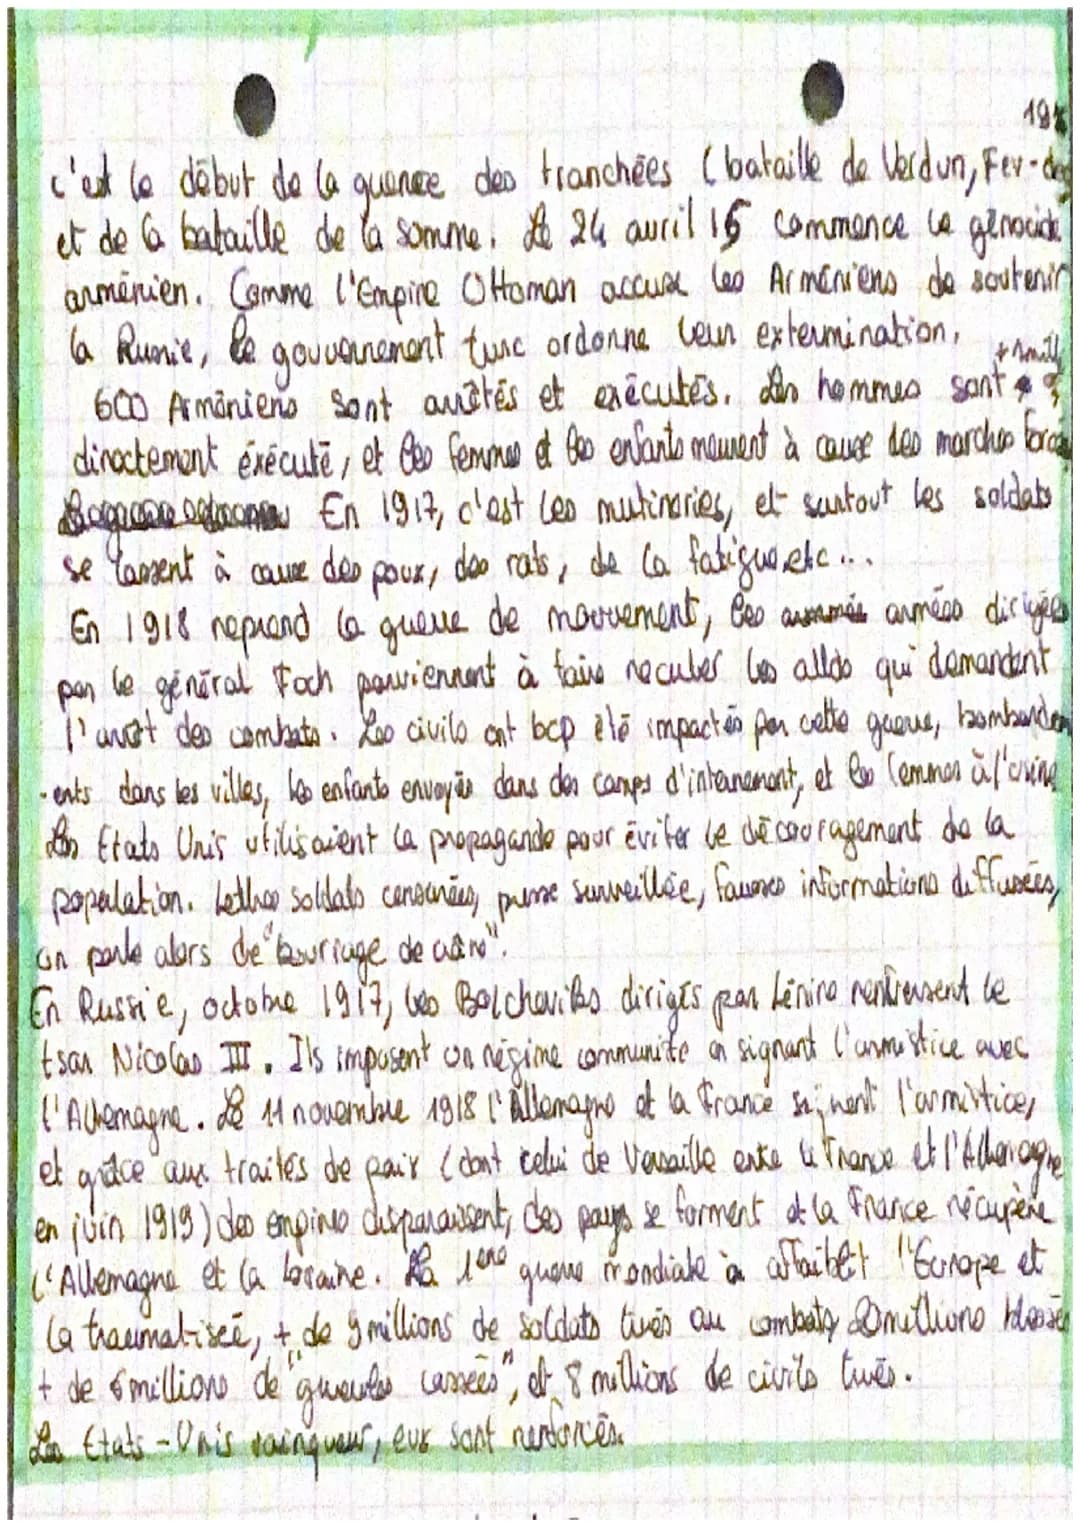 c'est le début de la guerre des tranchées (bataille de Verdun, Fev-
et de la bataille de la somme. Le 24 avril 15 commence le génocide
arménien. Comme l'Empire Ottoman accuse les Arméniens de soutenir
la Russie, le gouvernement turc ordonne leur extermination.
600 Arméniens sont arrêtés et exécutés. Les hommes sont
directement éxécuté, et les femmes et les enfants meurent à cause des marches forcées
En 1917, c'est les mutineries, et surtout les soldats
se lassent à cause des poux, des rats, de la fatigue, etc...
En 1918 reprend la guerre de mouvement, les armées dirigées
par le général Foch parviennent à faire reculer les allds qui demandent
l'arrêt des combats. Les civils ont bcp été impactés par cette guerre, bombardem
-ents dans les villes, les enfants envoyés dans des camps d'internement, et les femmes à l'usine
Les Etats Unis utilisaient la propagande pour éviter le découragement de la
population. Lettres soldats censurées, presse surveillée, fausses informations diffusées,
on parle alors de "bourrage de crâne".
En Russie, octobre 1917, les Bolcheviks dirigés par Lénine renversent le
tsar Nicolas III. Ils imposent un régime communiste en signant l'armistice avec
l'Allemagne. Le 11 novembre 1918 l'Allemagne et la France signent l'armistice,
et grâce aux traités de paix (dont celui de Versaille entre la France et l'Allemagne
en juin 1919) des empires disparaissent, des pays se forment et la France récupère
l'Allemagne et la Loraine. La 1ère guerre mondiale à affaiblit l'Europe et
la traumatiseé, + de 9 millions de soldats tués au combats, 20 millions blessés
+ de 6 millions de "gueules cassées", et 8 millions de civils tués.
Les Etats-Unis vainqueur, eux sont renforcés.